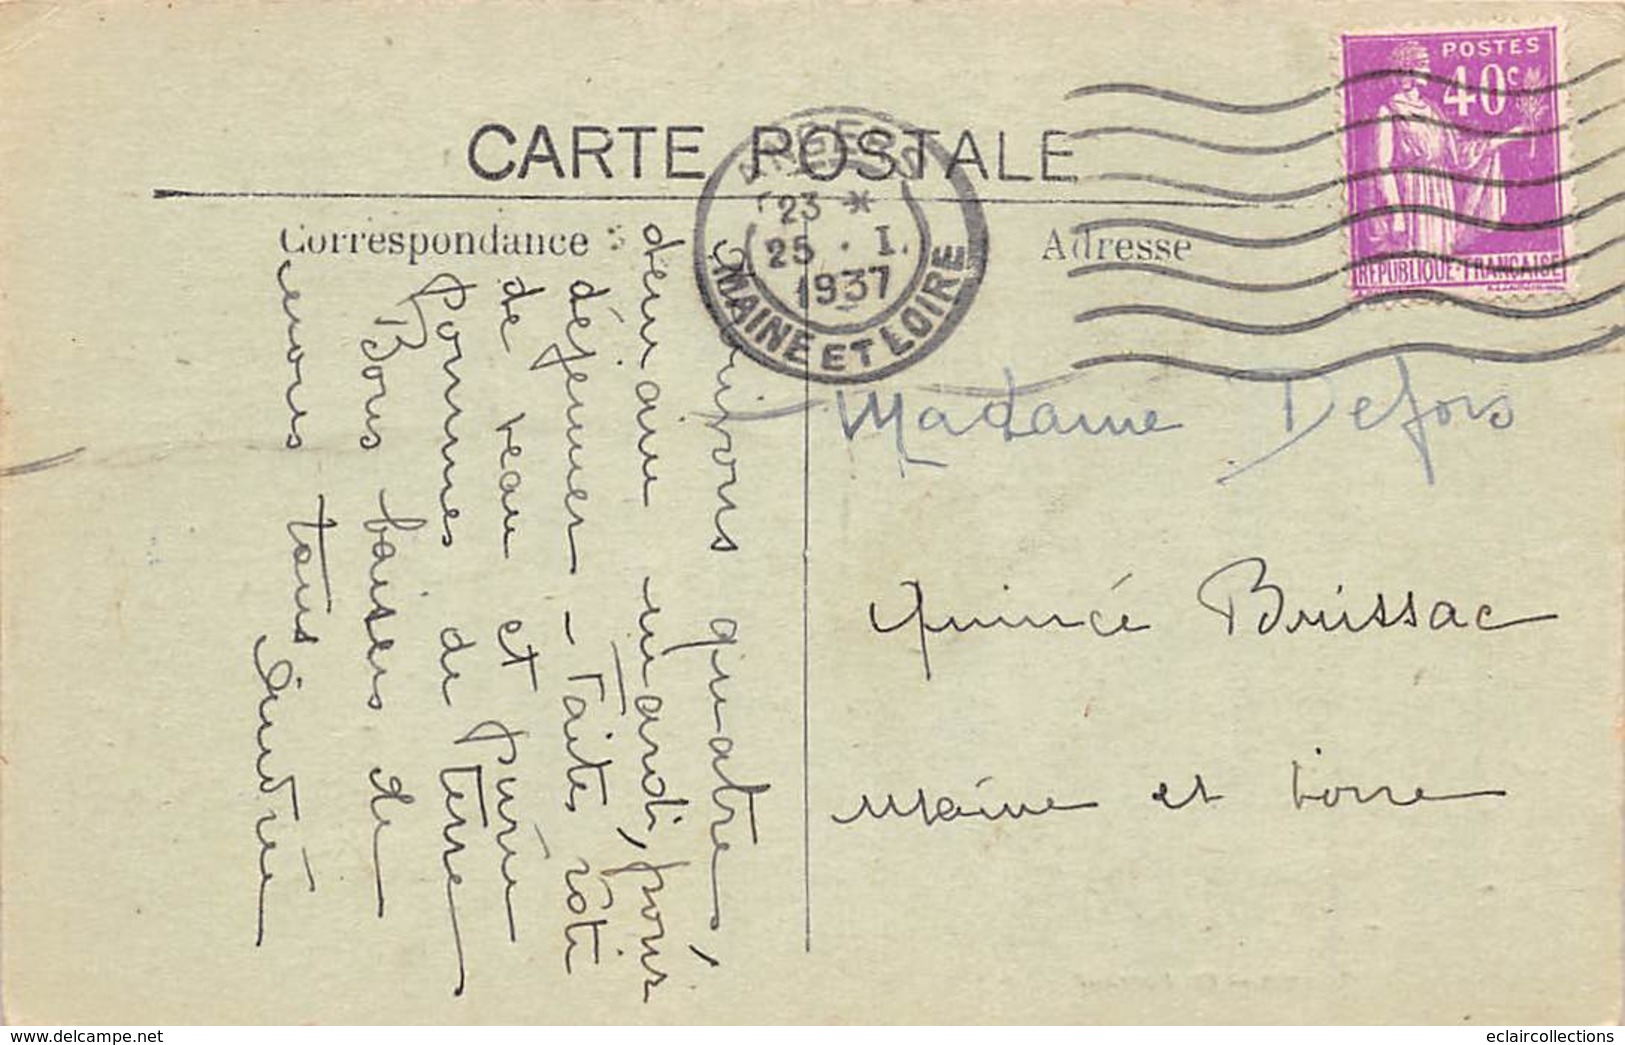 CARTE POSTALE
Correspondance
Adresse
POSTES
40c
REPUBLIQUE FRANÇAISE
ANGERS
23 *
25 . I.
1937
MAINE ET LOIRE
quatre,
demain mardi, pour
déjeuner – Faites rôti
de veau et Purée
Pommes de Terre
Bons baisers de
nous tous
Andrée
Madame Defois
Quincé Brissac
Maine et Loire
eclaircollections